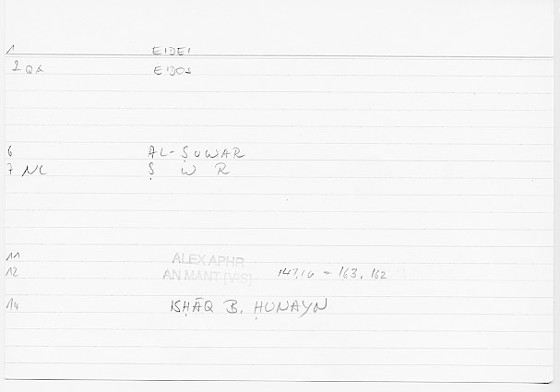 1 EIDEI
2 QA EIDOS
6 AL-ṢUWAR
7 NC Ṣ W R
11 ALEX APHR
12 AN MANT [VS] 147,16 = 163,162
14 ISḤĀQ B. ḤUNAYN